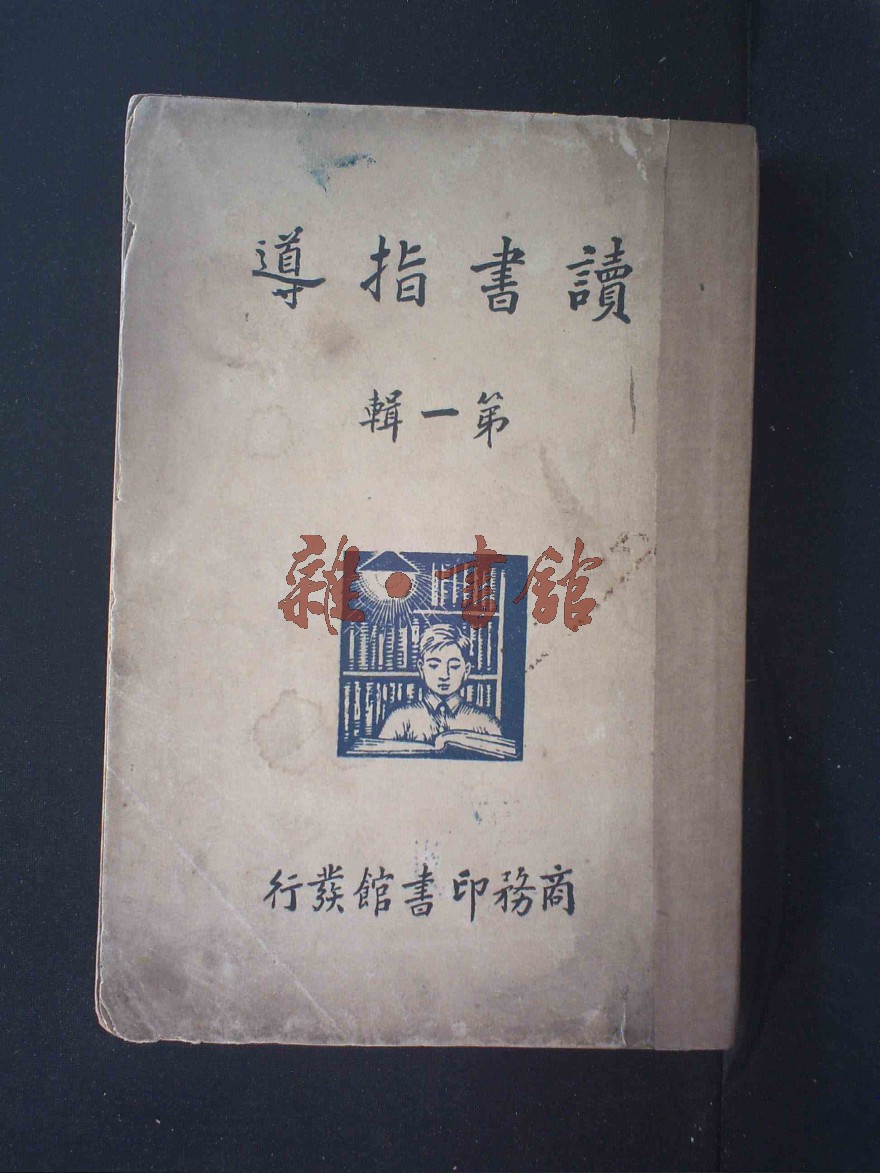 讀書指導
第一輯
雜·書館
商務印書館發行